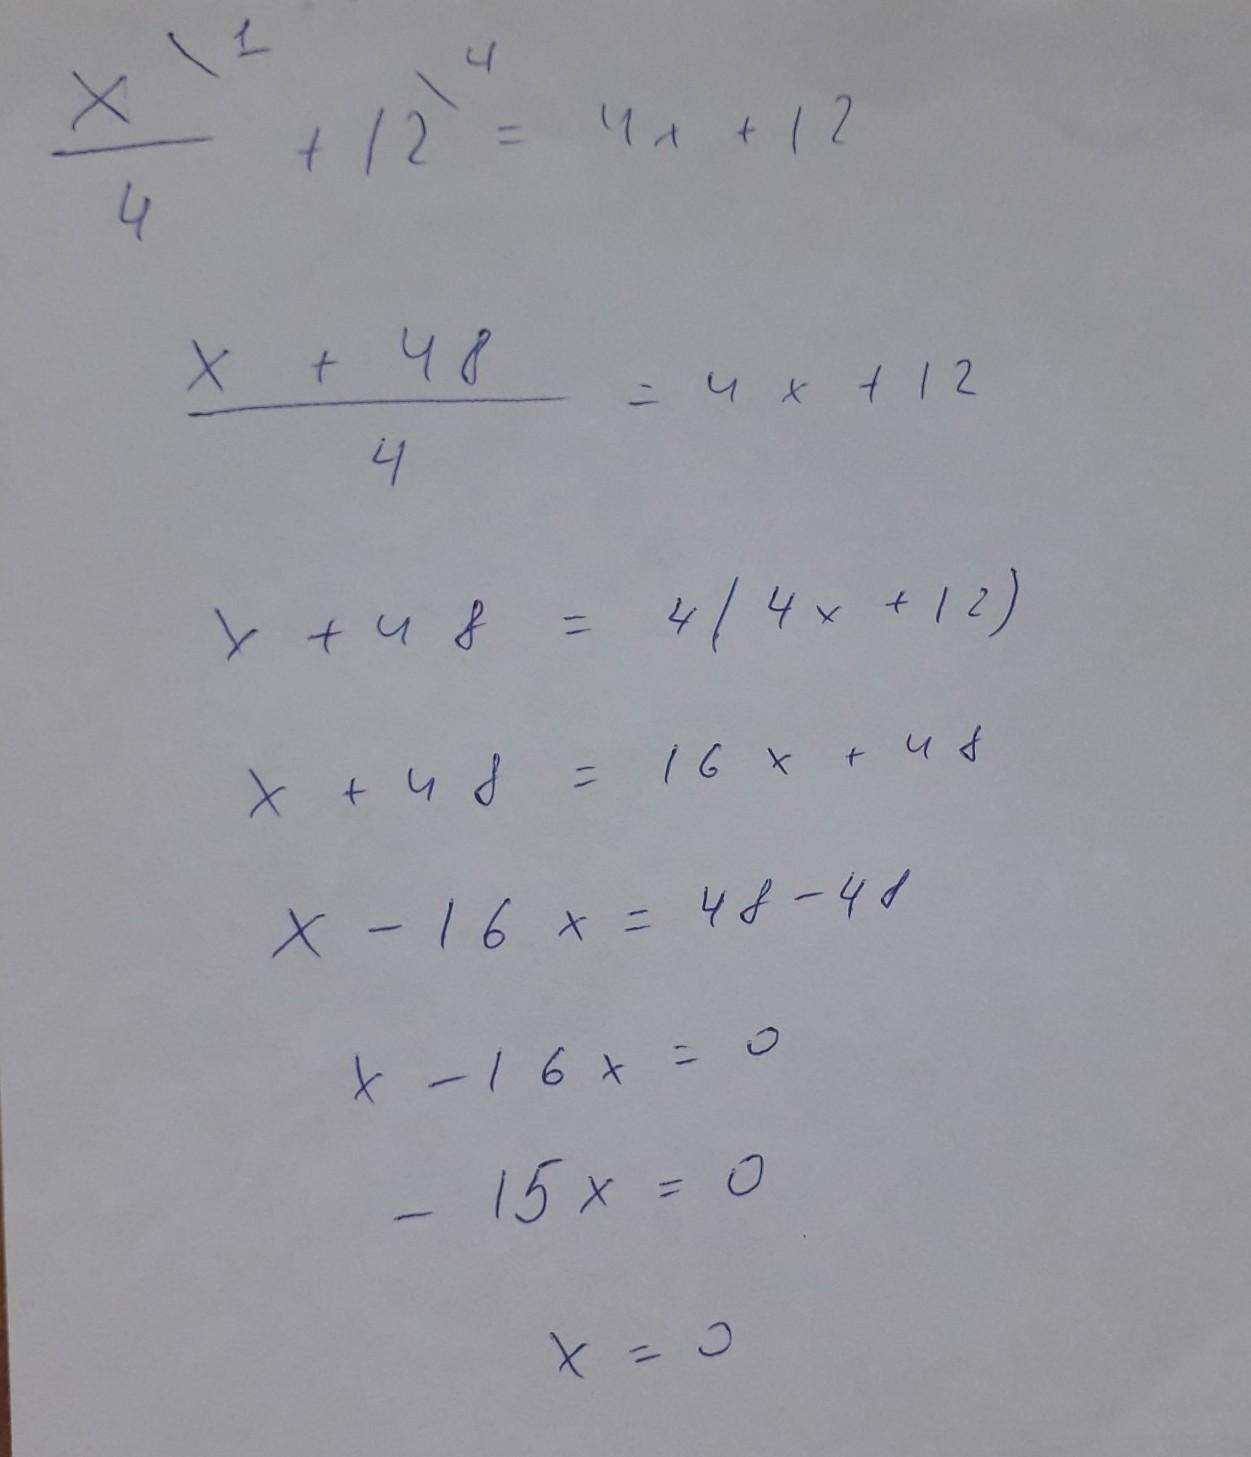 x\1/4 + 12\4 = 4x + 12
x + 48/4 = 4x + 12
x + 48 = 4(4x + 12)
x + 48 = 16x + 48
x - 16x = 48 - 48
x - 16x = 0
- 15x = 0
x = 0